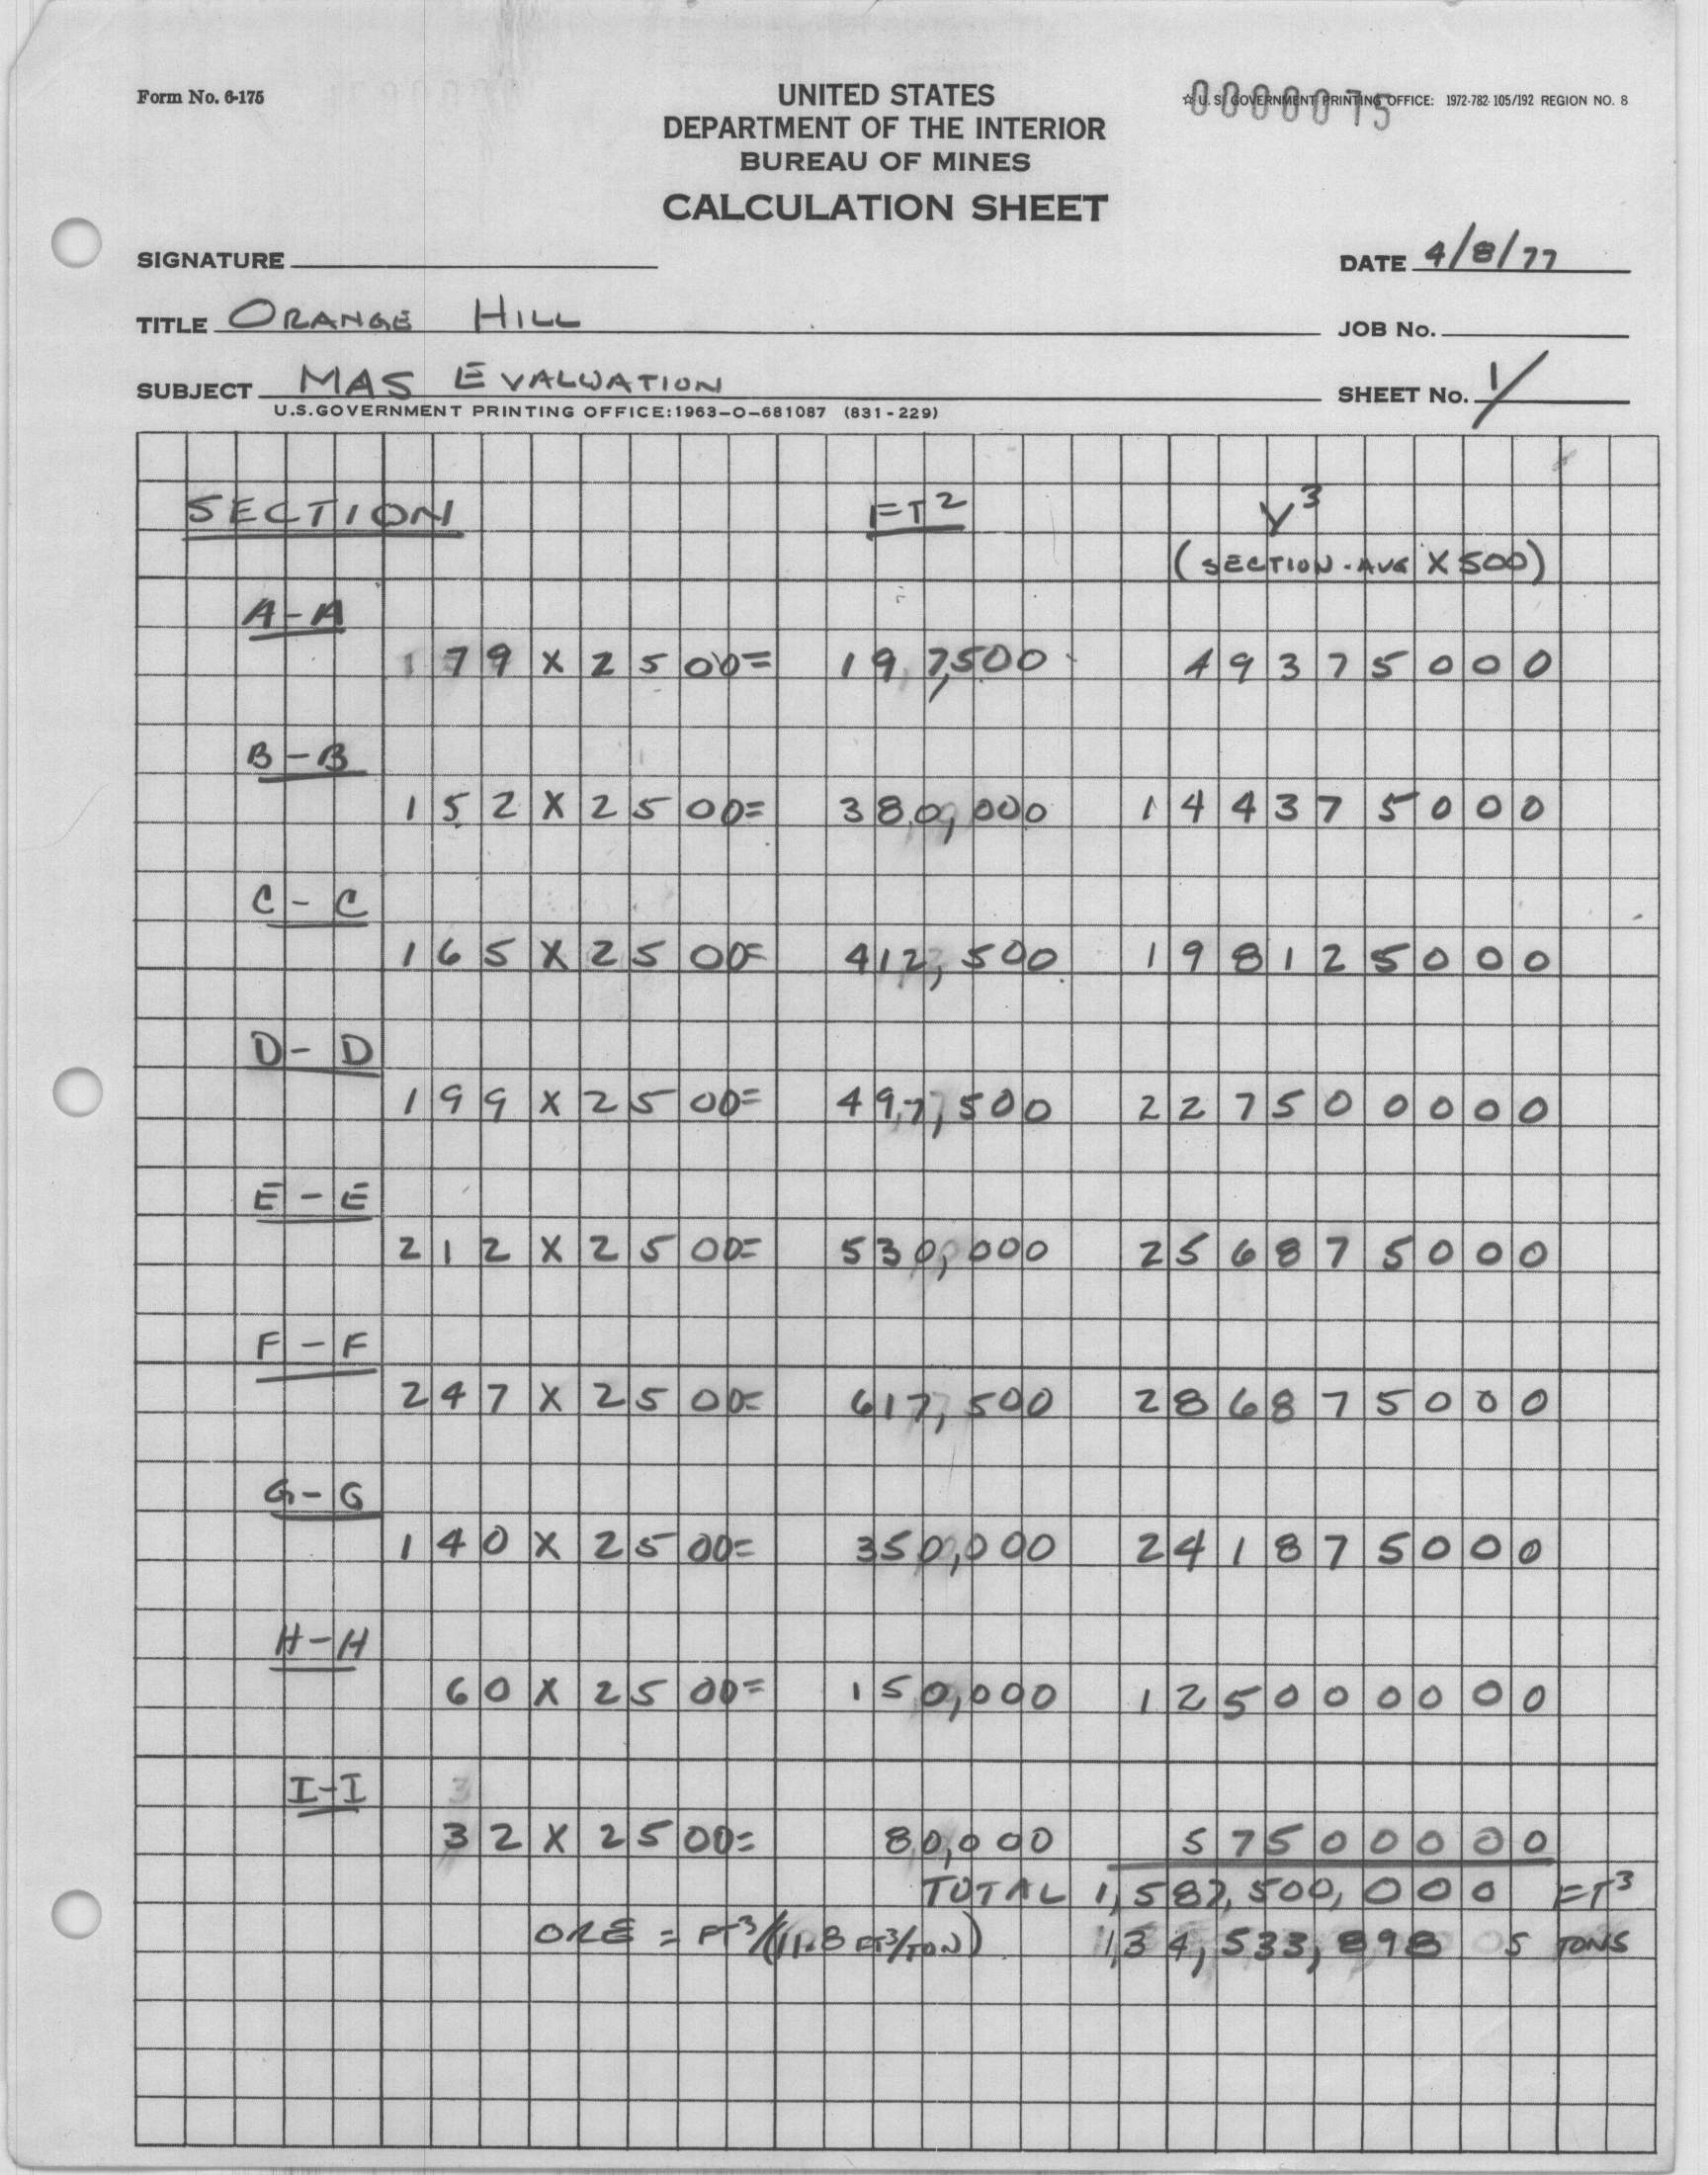 Form No. 6-175
UNITED STATES
DEPARTMENT OF THE INTERIOR
BUREAU OF MINES
CALCULATION SHEET
0000075
☆ U. S. GOVERNMENT PRINTING OFFICE: 1972-782-105/192 REGION NO. 8
SIGNATURE
DATE 4/8/77
TITLE ORANGE HILL
JOB No.
SUBJECT MAS EVALUATION
SHEET No. 1/
U.S.GOVERNMENT PRINTING OFFICE:1963-O-681087 (831-229)
SECTION FT² V³
(SECTION-AVG X 500)
A-A
79 X 2500= 197,500 49375000
B-B
152 X 2500= 380,000 144375000
C-C
165 X 2500= 412,500 198125000
D-D
199 X 2500= 497,500 227500000
E-E
212 X 2500= 530,000 256875000
F-F
247 X 2500= 617,500 286875000
G-G
140 X 2500= 350,000 241875000
H-H
60 X 2500= 150,000 125000000
I-I
32 X 2500= 80,000 57500000
TOTAL 1,587,500,000 FT³
ORE = FT³/(11.8 FT³/TON) 134,533,898 S TONS